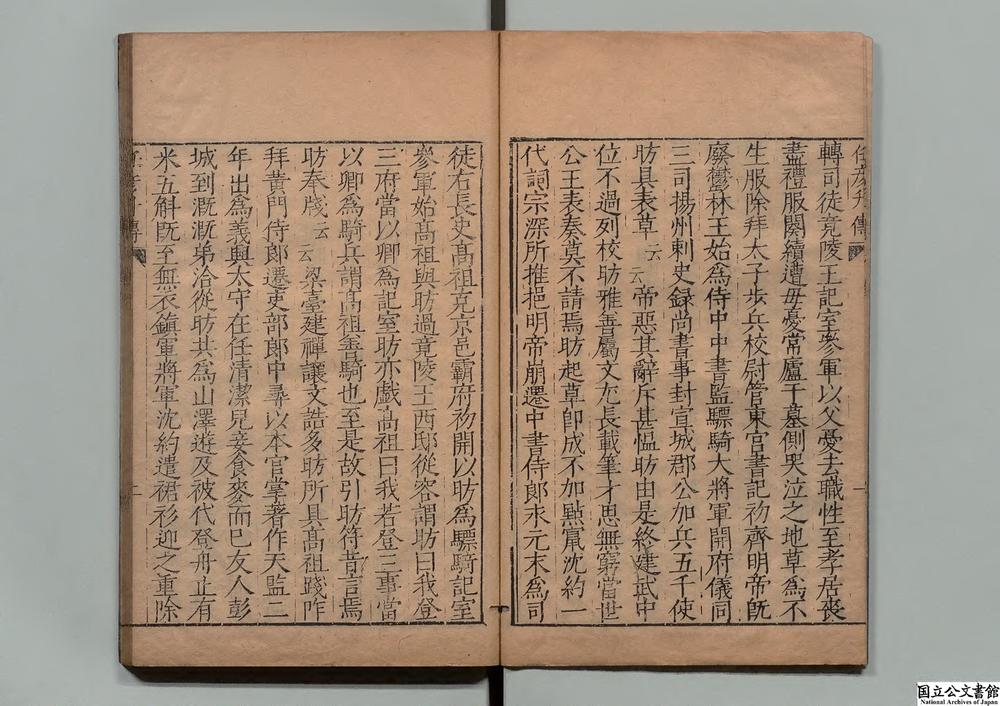 任彦升傳
轉司徒竟陵王記室參軍以父憂去職性至孝居喪
盡禮服闋續遭毋憂常廬于墓側哭泣之地草爲不
生服除拜太子步兵校尉管東宮書記初齊明帝旣
廢鬱林王始爲侍中中書監驃騎大將軍開府儀同
三司揚州刺史録尚書事封宣城郡公加兵五千使
昉具表草云云帝惡其辭斥甚慍昉由是終建武中
位不過列校昉雅善屬文尤長載筆才思無窮當世
公王表奏莫不請焉昉起草卽成不加點竄沈約一
代詞宗深所推挹明帝崩遷中書侍郎永元末爲司
一
徒右長史高祖克京邑霸府初開以昉爲驃騎記室
參軍始高祖與昉過竟陵王西邸從容謂昉曰我登
三府當以卿爲記室昉亦戲高祖曰我若登三事當
以卿爲騎兵謂高祖善騎也至是故引昉符昔言焉
昉奉牋云云梁臺建禪讓文誥多昉所具高祖踐阼
拜黃門侍郎遷吏部郎中尋以本官掌著作天監二
年出爲義興太守在任清潔兒妾食麥而已友人彭
城到溉溉弟洽從昉共爲山澤遊及被代登舟止有
米五斛旣至無衣鎮軍將軍沈約遣裙衫迎之重除
傳
二
国立公文書館
National Archives of Japan